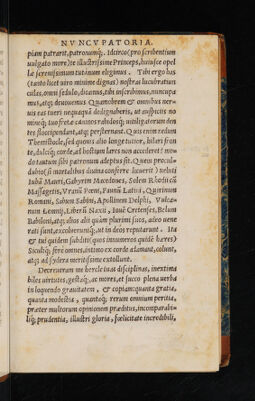 NVNCVPATORIA.
piam patrarit, patrouimq́. Idcirco (pro scribentium
uulgato more) te illustrissime Princeps, huiusce opel
læ serenissimum tutinum eligimus. Tibi ergo has
(tanto licet uiro minime dignas) nostras lucubratiun
culas, omni sedulo, dicamus, tibi inscribimus, nuncupa
mus, atq; deuouemus. Quamobrem & omnibus ner-
uis eas tueri nequaquā dedignaberis, ut auspitijs no
minq́; tuo freta caninos rabidosq́; uitilitigatorum den
tes floccipendant, atq; persternant. Quis enim nedum
Themistocle, sed quouis alio longe tutior, hilari fron
te, dulciq́; corde, ad hostium locum non accederet? mo
do tantum sibi patronum adeptus sit. Qnem procul
dubio (si mortalibus diuina conferre liceret) ueluti
Iubā Mauri, Gabyrim Macedones, Solem Rhodij cū
Massagetis, Vranū Pœni, Faunū Latini, Quirinum
Romani, Sabum Sabini, Apollinem Delphi, Vulca-
num Lemnij, Liberū Naxij, Iouē Cretenses, Belum
Babilonij, atq; alios alij quàm plurimi suos, adeo uene
rati sunt, ac coluerunt q́;, ut in deos reputarunt. Ita
& te (ut quidem sublili) (quos innumeros quidē haeres)
Siculiq́; ferè omnes, intimo ex corde adamant, colunt,
atq; ad sydera meritissime extollunt.
Decreueram me hercle tuas disciplinas, inextima
biles uirtutes, gestaq́;, ac mores, et succo plena uerba
in loquendo grauitatem, & copiam: quanta gratia,
quanta modestia, quantoq́; rerum omnium peritia,
præter multorum opinionem præditus, incomparabi-
liq́; prudentia, illustri gloria, fœlicitate incredibili,